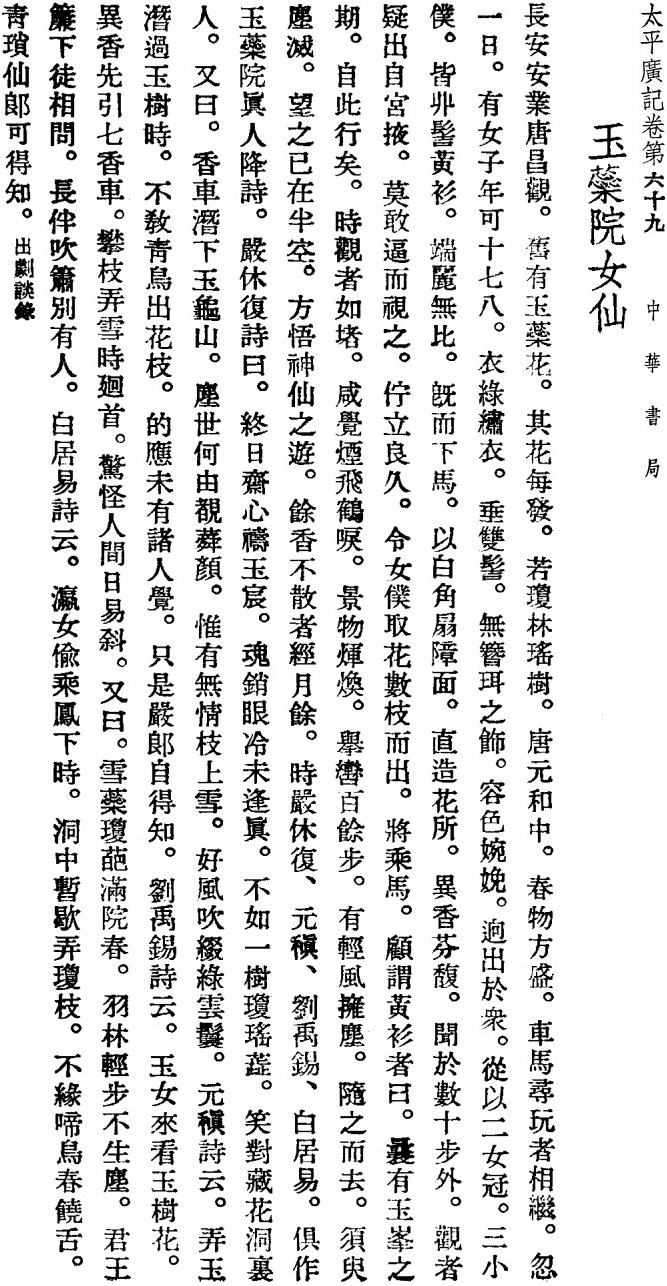 太平廣記卷第六十九　中華書局
玉蘂院女仙
長安安業唐昌觀。舊有玉蘂花。其花每發。若瓊林瑤樹。唐元和中。春物方盛。車馬尋玩者相繼。忽
一日。有女子年可十七八。衣綠繡衣。垂雙髻。無簪珥之飾。容色婉娩。迥出於衆。從以二女冠。三小
僕。皆丱髻黃衫。端麗無比。旣而下馬。以白角扇障面。直造花所。異香芬馥。聞於數十步外。觀者
疑出自宮掖。莫敢逼而視之。佇立良久。令女僕取花數枝而出。將乘馬。顧謂黃衫者曰。曩有玉峯之
期。自此行矣。時觀者如堵。咸覺煙飛鶴唳。景物輝煥。舉轡百餘步。有輕風擁塵。隨之而去。須臾
塵滅。望之已在半空。方悟神仙之遊。餘香不散者經月餘。時嚴休復、元稹、劉禹錫、白居易。俱作
玉蘂院眞人降詩。嚴休復詩曰。終日齋心禱玉宸。魂銷眼冷未逢眞。不如一樹瓊瑤蕋。笑對藏花洞裏
人。又曰。香車潛下玉龜山。塵世何由覩蕣顏。惟有無情枝上雪。好風吹綴綠雲鬟。元稹詩云。弄玉
潛過玉樹時。不敎靑鳥出花枝。的應未有諸人覺。只是嚴郎自得知。劉禹錫詩云。玉女來看玉樹花。
異香先引七香車。攀枝弄雪時廻首。驚怪人間日易斜。又曰。雪蘂瓊葩滿院春。羽林輕步不生塵。君王
簾下徒相問。長伴吹簫別有人。白居易詩云。瀛女偸乘鳳下時。洞中暫歇弄瓊枝。不緣啼鳥春饒舌。
靑瑣仙郎可得知。出劇談錄